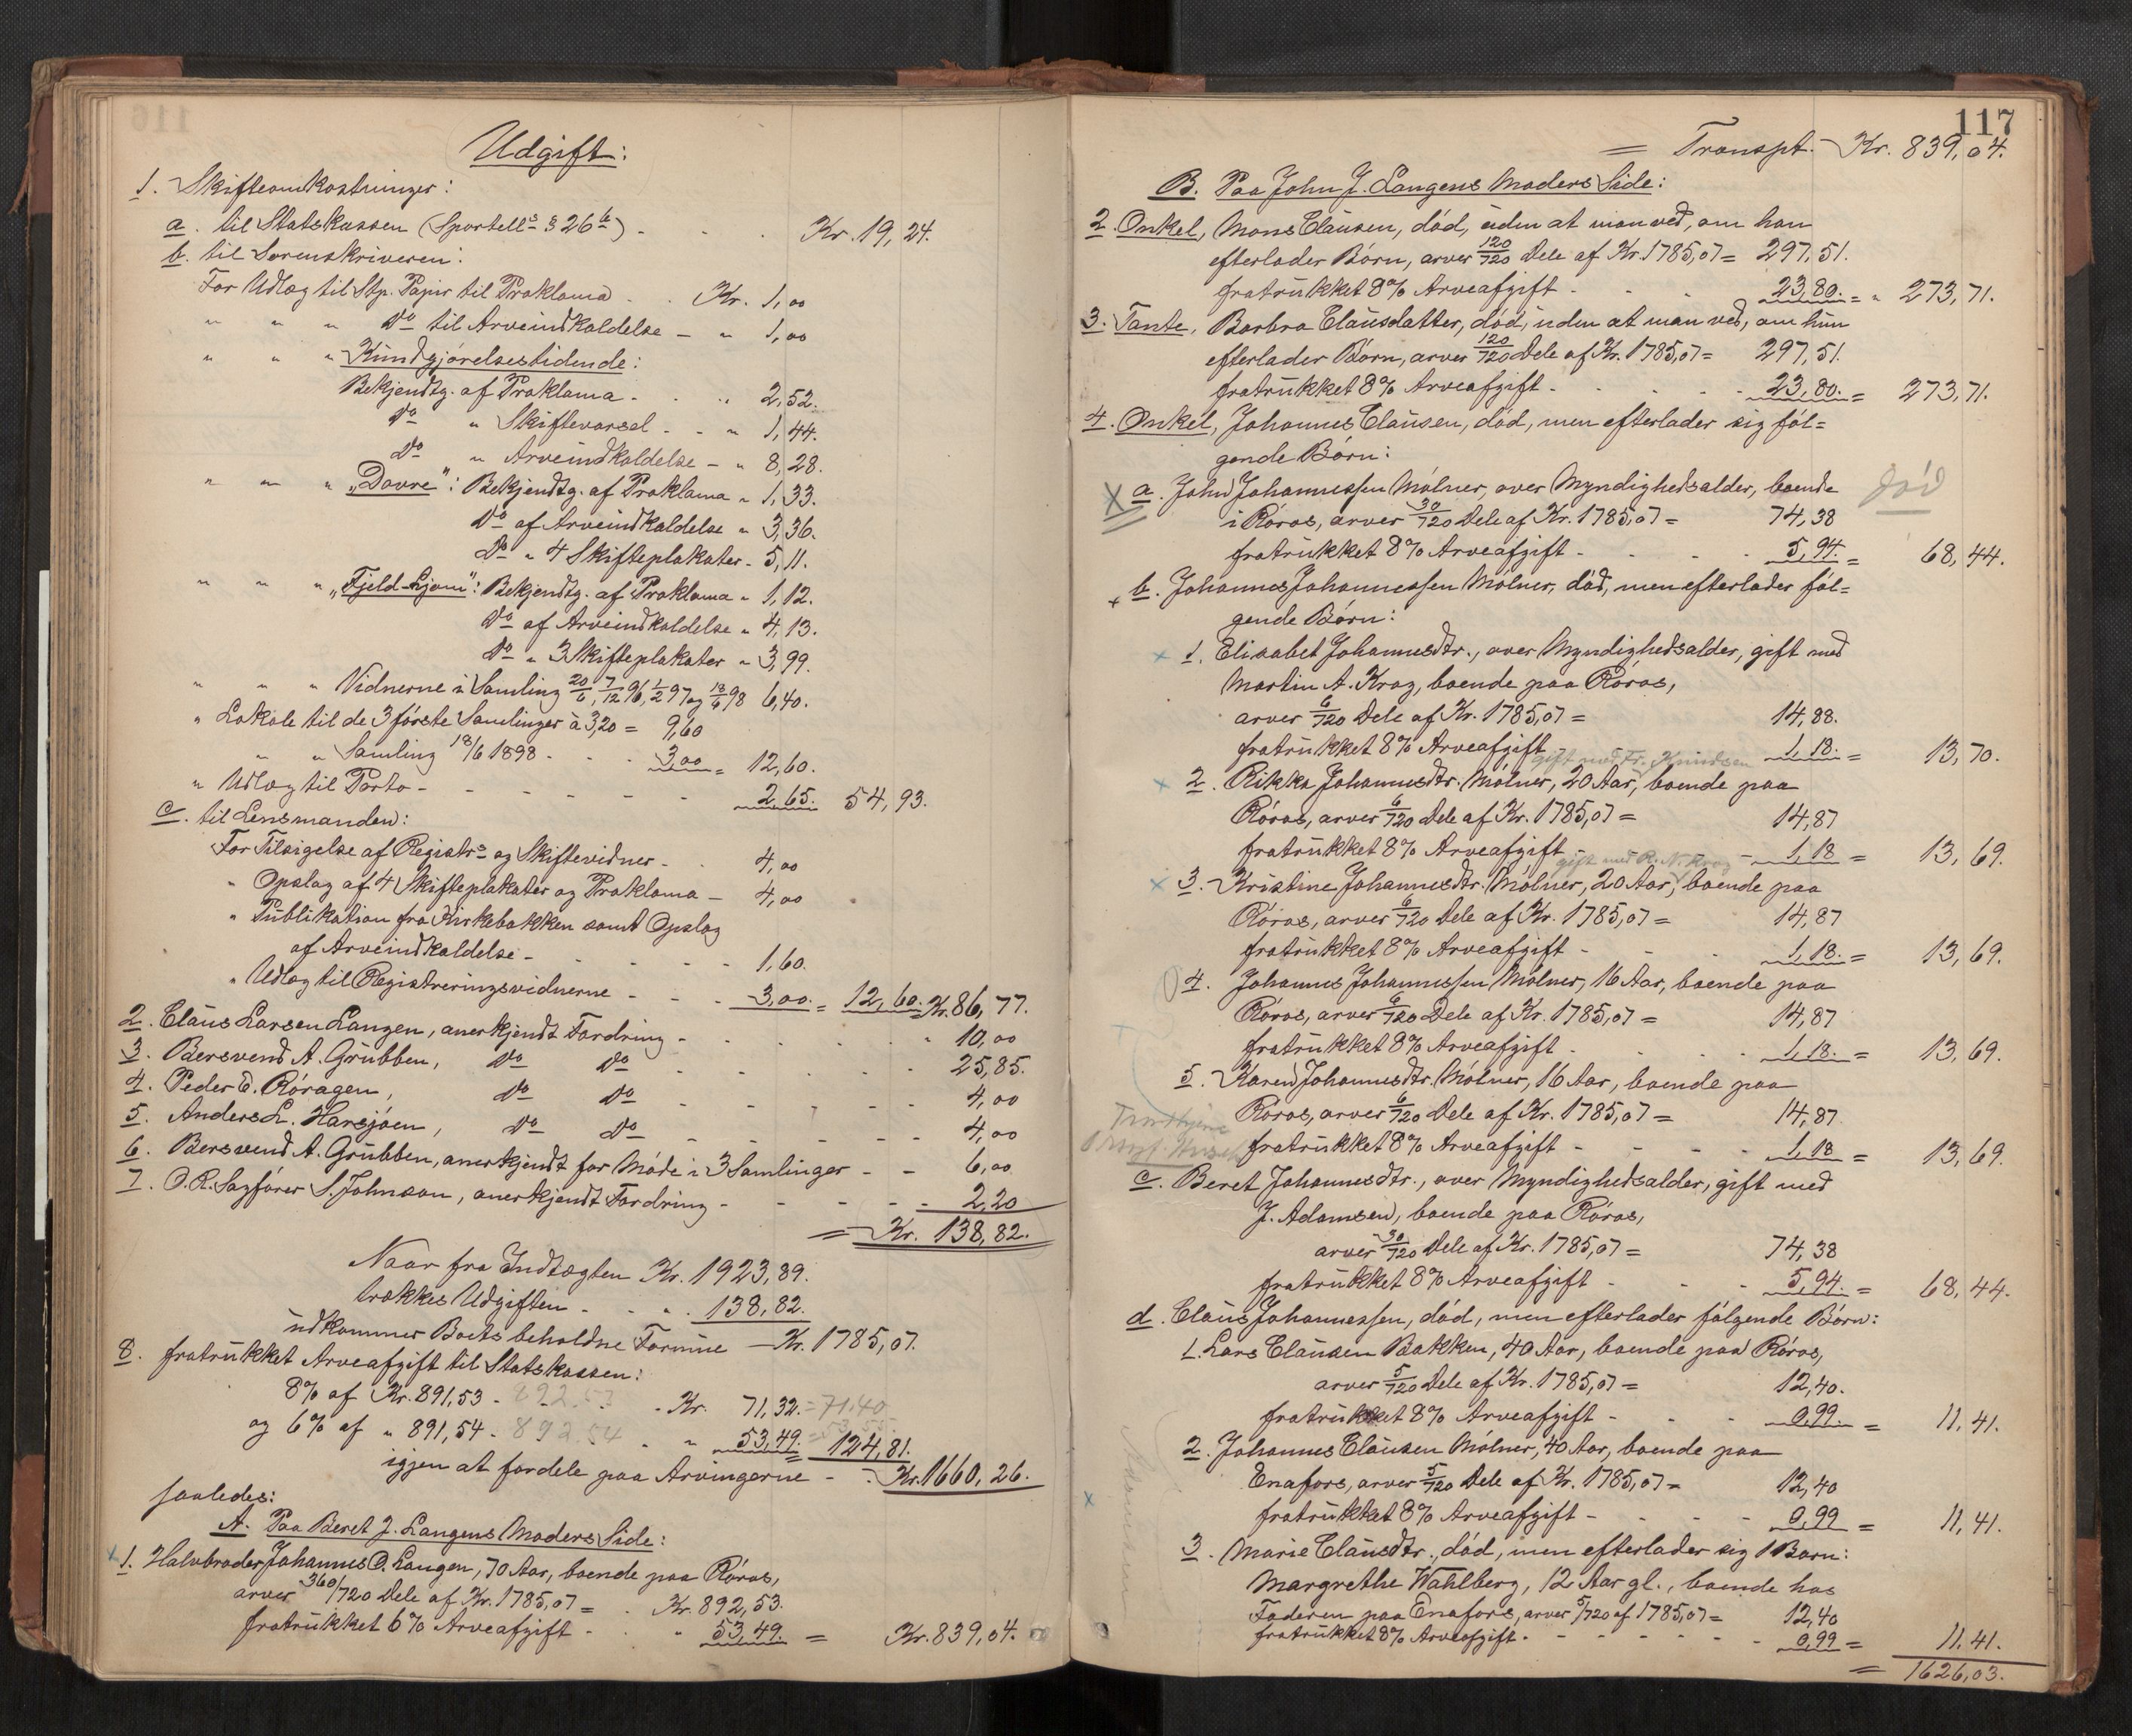 Udgift:
1. Skifteomkostninger:
a. til Statskassen (Sportell⁵ § 26ᵇ) - - - Kr. 19,24.
b. til Sorenskriveren:
For Udlæg til Stp. Papir til Proklama - - Kr. 1,00
" " " Do til Arveindkaldelse - " 1,00
" " " Kundgjørelsestidende:
Bekjendtg. af Proklama - - " 2,52.
Do " Skiftevarsel - - " 1,44.
Do " Arveindkaldelse - " 8,28.
" " " "Dovre": Bekjendtg. af Proklama " 1,33.
Do af Arveindkaldelse " 3,36.
Do " 4 Skifteplakater - 5,11.
" " " "Fjeld-Ljom": Bekjendtg. af Proklama " 1,12.
Do af Arveindkaldelse " 4,13.
Do " 3 Skifteplakater " 3,99.
" " " Vidnerne i Samling 20/6, 7/12 96, 1/2 97 og 18/6 98 6,40.
" Lokale til de 3 første Samlinger à 3,20 = 9,60
" " Samling 18/6 1898 - - - 3,00 = 12,60.
" Udlæg til Porto - - - - - - 2,65. 54,93.
c. til Lensmanden:
For Tilsigelse af Registrs og Skiftevidner - - 4,00
" Opslag af 4 Skifteplakater og Proklama - 4,00
" Publikation fra Kirkebakken samt Opslag
af Arveindkaldelse - - - - - 1,60.
" Udlæg til Registreringsvidnerne - - - 3,00. = 12,60. Kr. 86,77.
2. Claus Larsen Langen, anerkjendt Fordring - - - - - " 10,00
3. Bersvend A. Grubben, Do Do - - - - - 25,85.
4. Peder E. Røragen, Do Do - - - - - 4,00
5. Anders L. Harsjøen, Do Do - - - - - 4,00
6. Bersvend A. Grubben, anerkjendt for Møde i 3 Samlinger - - 6,00
7. O. R. Sagfører S. Johnson, anerkjendt Fordring - - - - - 2,20
= Kr. 138,82.
Naar fra Indtægten Kr. 1923,89.
trækkes Udgiften - - - - 138,82.
udkommer Boets beholdne Formue - Kr. 1785,07.
8. fratrukket Arveafgift til Statskassen:
8% af Kr. 891,53 - 892.53 - Kr. 71,32. = 71.40
og 6% af " 891,54 - 892.54 - " 53,49. = 124,81.
igjen at fordele paa Arvingerne - - Kr. 1660,26.
saaledes:
A. Paa Beret J. Langens Moders Side:
1. Halvbroder Johannes O. Langen, 70 Aar, boende paa Røros,
arver 360/720 Dele af Kr. 1785,07 = - Kr. 892,53.
fratrukket 6% Arveafgift - - " 53,49. = Kr. 839,04.
117
= Transpt. - Kr. 839,04.
B. Paa John J. Langens Moders Side:
2. Onkel, Mons Clausen, død, uden at man ved, om han
efterlader Børn, arver 120/720 Dele af Kr. 1785,07 = 297,51.
fratrukket 8% Arveafgift - - - 23,80. = " 273,71.
3. Tante, Barbra Clausdatter, død, uden at man ved, om hun
efterlader Børn, arver 120/720 Dele af Kr. 1785,07 = 297,51.
fratrukket 8% Arveafgift - - - - 23,80. = 273,71.
4. Onkel, Johannes Clausen, død, men efterlader sig føl=
gende Børn:
a. John Johannessen Mølner, over Myndighedsalder, boende død
i Røros, arver 30/720 Dele af Kr. 1785,07 = 74,38
fratrukket 8% Arveafgift - - - - 5,94. = 68,44.
b. Johannes Johannessen Mølner, død, men efterlader føl=
gende Børn:
1. Elisabet Johannesdtr., over Myndighedsalder, gift med
Martin A. Krog, boende paa Røros,
arver 6/720 Dele af Kr. 1785,07 = 14,88.
fratrukket 8% Arveafgift - 1,18. = 13,70.
gift med Fr. Knudsen
2. Rikka Johannesdtr. Mølner, 20 Aar, boende paa
Røros, arver 6/720 Dele af Kr. 1785,07 = 14,87
fratrukket 8% Arveafgift - 1,18 = 13,69.
gift med R. N. Krog
3. Kristine Johannesdtr. Mølner, 20 Aar, boende paa
Røros, arver 6/720 Dele af Kr. 1785,07 = 14,87
fratrukket 8% Arveafgift - - - 1,18. = 13,69.
4. Johannes Johannessen Mølner, 16 Aar, boende paa
Røros, arver 6/720 Dele af Kr. 1785,07 = 14,87
fratrukket 8% Arveafgift - - - 1,18. = 13,69.
5. Karen Johannesdtr. Mølner, 16 Aar, boende paa
Røros, arver 6/720 Dele af Kr. 1785,07 = 14,87
fratrukket 8% Arveafgift - - - - 1,18 = 13,69.
c. Beret Johannesdtr., over Myndighedsalder, gift med
J. Adamsen, boende paa Røros,
arver 30/720 Dele af Kr. 1785,07 = 74,38
fratrukket 8% Arveafgift - - - 5,94. = 68,44.
d. Claus Johannessen, død, men efterlader følgende Børn:
1. Lars Clausen Bakken, 40 Aar, boende paa Røros,
arver 5/720 Dele af Kr. 1785,07 = 12,40.
fratrukket 8% Arveafgift - - - 0,99. = 11,41.
2. Johannes Clausen Mølner, 40 Aar, boende paa
Enafors, arver 5/720 Dele af Kr. 1785,07 = 12,40
fratrukket 8% Arveafgift - - - - 0,99 = 11,41.
3. Marie Clausdtr., død, men efterlader sig 1 Barn:
Margrethe Wahlberg, 12 Aar gl., boende hos
Faderen paa Enafors, arver 5/720 af 1785,07 = 12,40
fratrukket 8% Arveafgift - - - - - - 0,99 = 11,41.
= 1626,03.